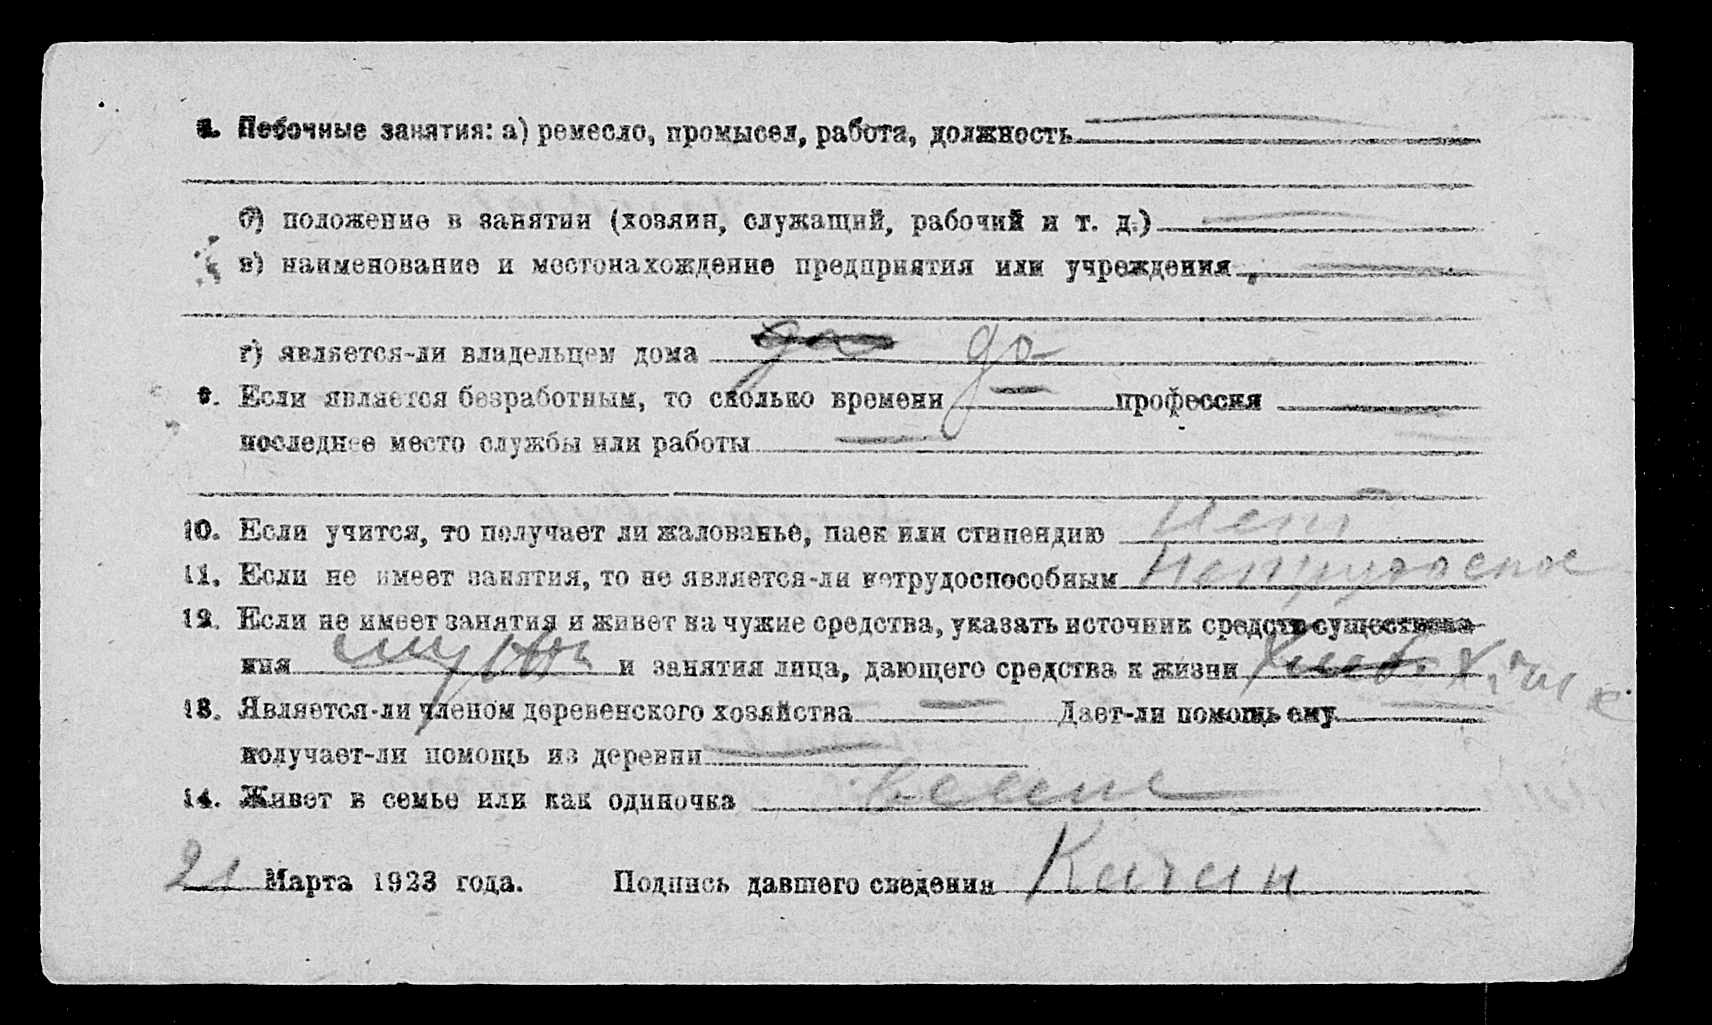 8. Побочные занятия: а) ремесло, промысел, работа, должность
б) положение в занятии (хозяин, служащий, рабочий и т. д.)
в) наименование и местонахождение предприятия или учреждения
г) является-ли владельцем дома да да
9. Если является безработным, то сколько времени профессия
последнее место службы или работы
10. Если учится, то получает ли жалованье, паек или стипендию Нет
11. Если не имеет занятия, то не является-ли нетрудоспособным Нетрудоспос
12. Если не имеет занятия и живет на чужие средства, указать источник средств существова-
ния и занятия лица, дающего средства к жизни
13. Является-ли членом деревенского хозяйства Дает-ли помощь ему
получает-ли помощь из деревни
14. Живет в семье или как одиночка в семье
21 Марта 1923 года. Подпись давшего сведения